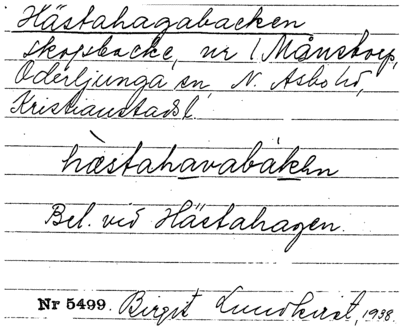 Hästahagabacken
skogsbacke, nr 1 Månstorp,
Oderljunga sn, N. Åsbo hd,
Kristianstads l.
hàstahavabáken
Bel. vid Hästahagen.
Nr 5499. Birgit Lundkvist, 1938.